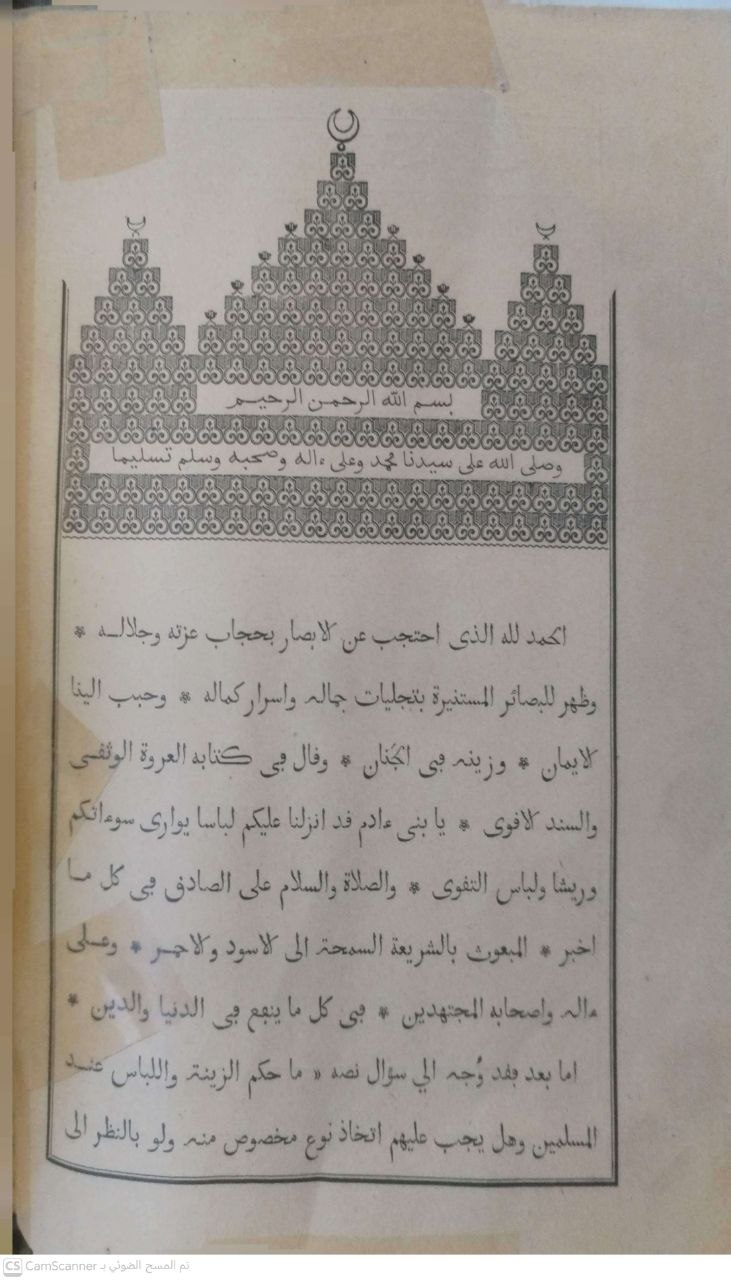 بسم الله الرحمن الرحيم
وصلى الله على سيدنا محمد وعلى ءاله وصحبه وسلم تسليما
الحمد لله الذى احتجب عن الابصار بحجاب عزته وجلاله *
وظهر للبصائر المستنيرة بتجليات جماله واسرار كماله * وحبب الينا
الايمان * وزينه ڢى الجنان * وفال ڢى كتابه العروة الوثفى
والسند الافوى * يا بنى ءادم فد انزلنا عليكم لباسا يوارى سوءاتكم
وريشا ولباس التفوى * والصلاة والسلام على الصادف ڢى كل ما
اخبر * المبعوث بالشريعة السمحة الى الاسود والاحمر * وعلى
ءاله واصحابه المجتهدين * ڢى كل ما ينڢع ڢى الدنيا والدين *
اما بعد ڢفد وُجه الي سؤال نصه « ما حكم الزينة واللباس عند
المسلمين وهل يجب عليهم اتخاذ نوع مخصوص منه ولو بالنظر الى
CS CamScanner تم المسح الضوئي بـ